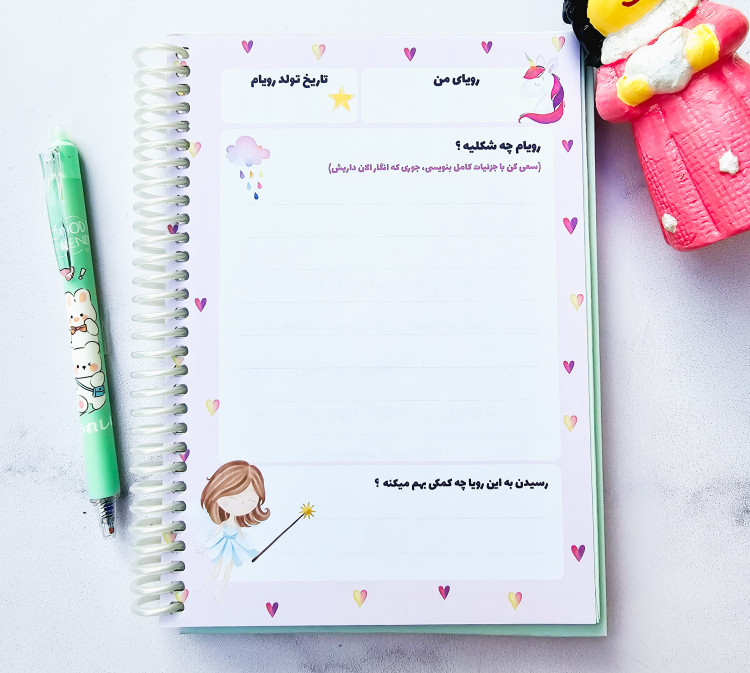 رویای من
تاریخ تولد رویام
رویام چه شکلیه ؟
(سعی کن با جزئیات کامل بنویسی، جوری که انگار الان داریش)
رسیدن به این رویا چه کمکی بهم میکنه ؟